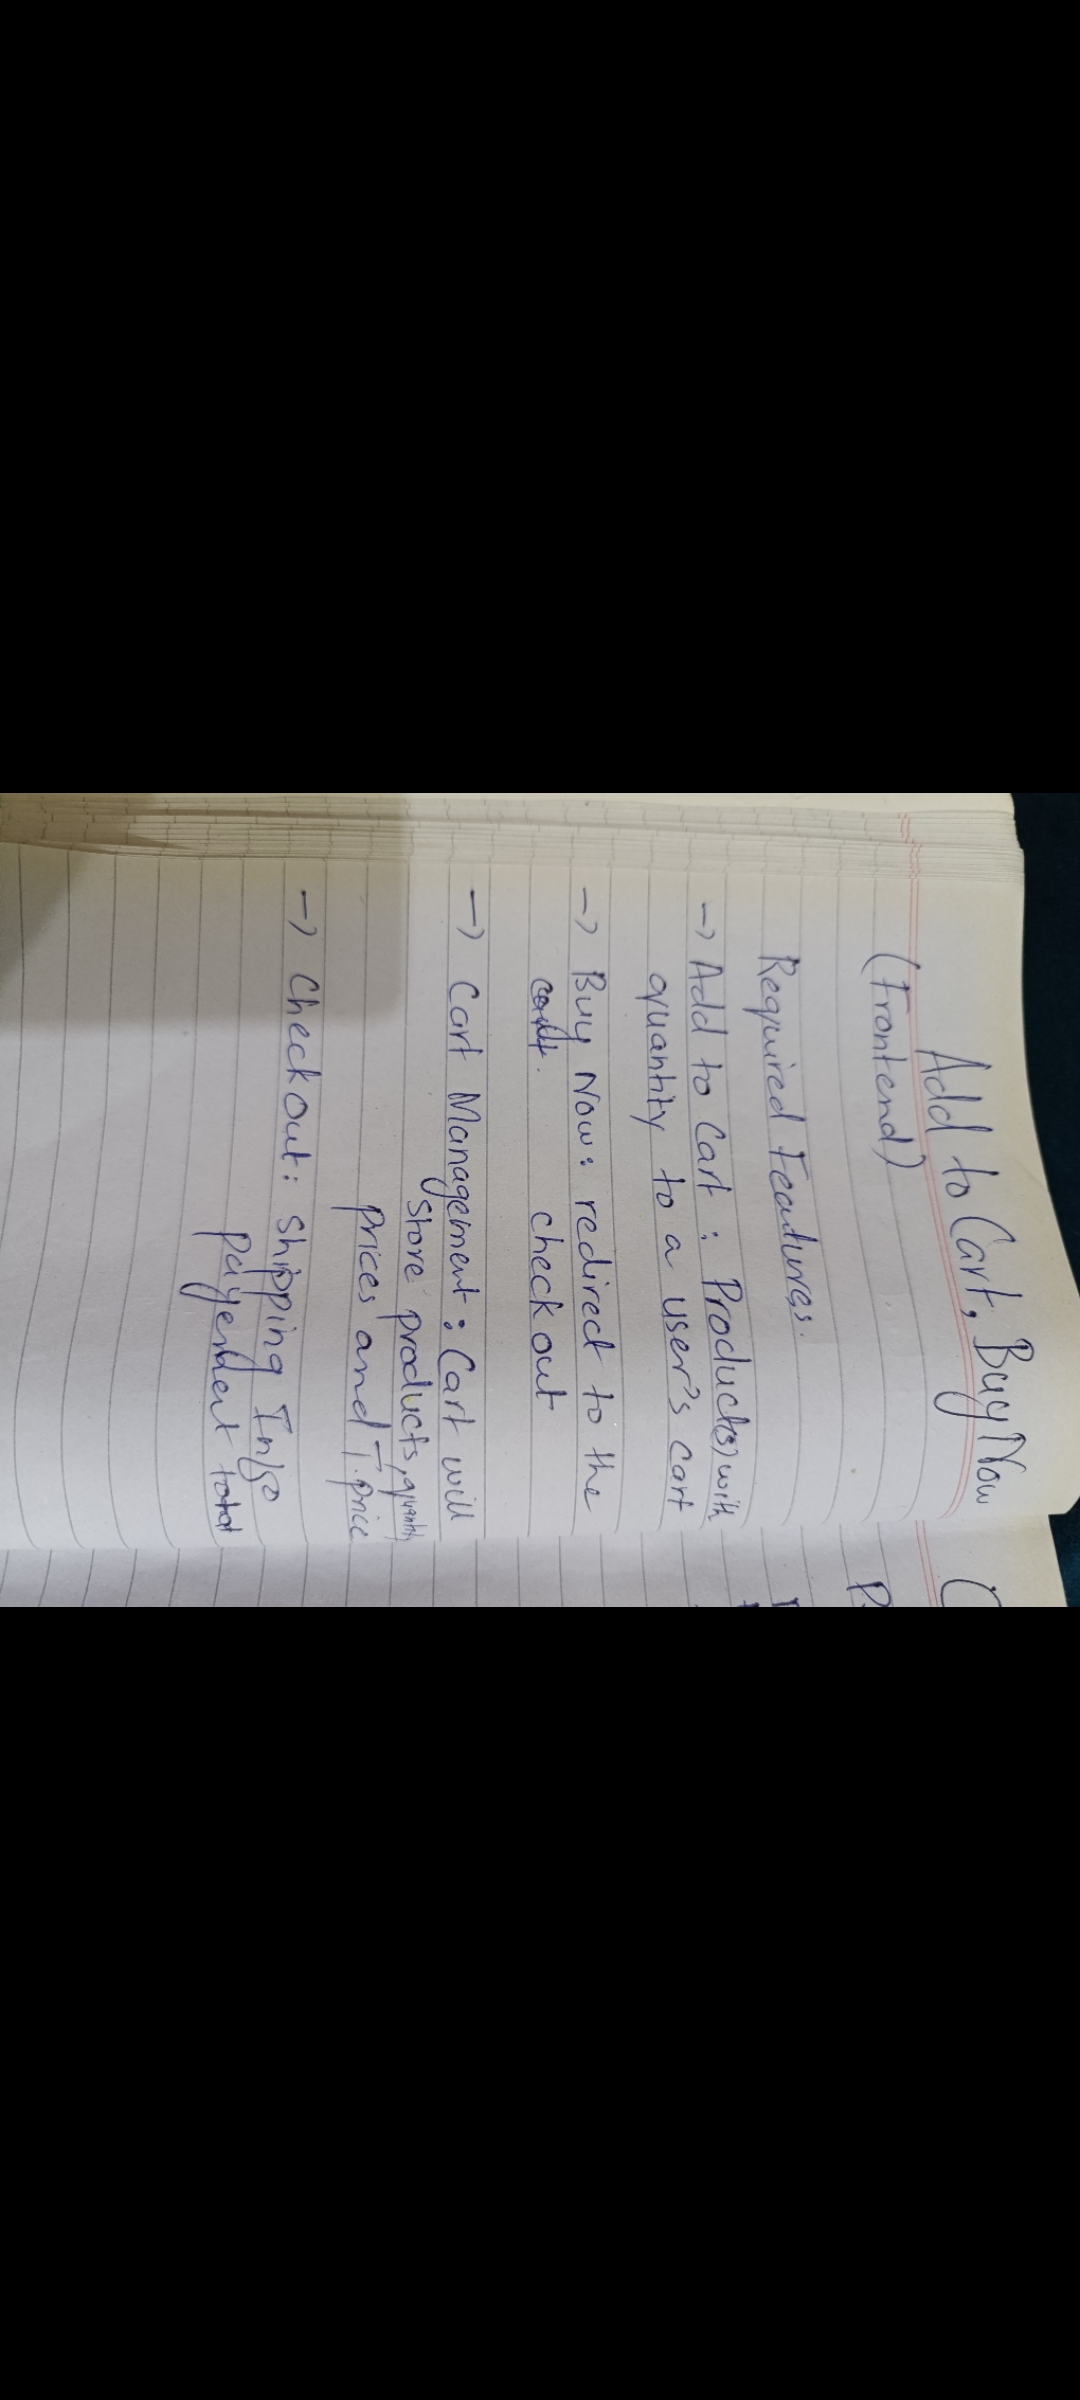 Add to Cart, Buy Now
(Frontend)
Required Features.
-> Add to Cart : Product(s) with
quantity to a user's cart
-> Buy Now: redirect to the
checkout
-> Cart Management: Cart will
store products, quantity
prices and T.price
-> Checkout: Shipping Info
payement total